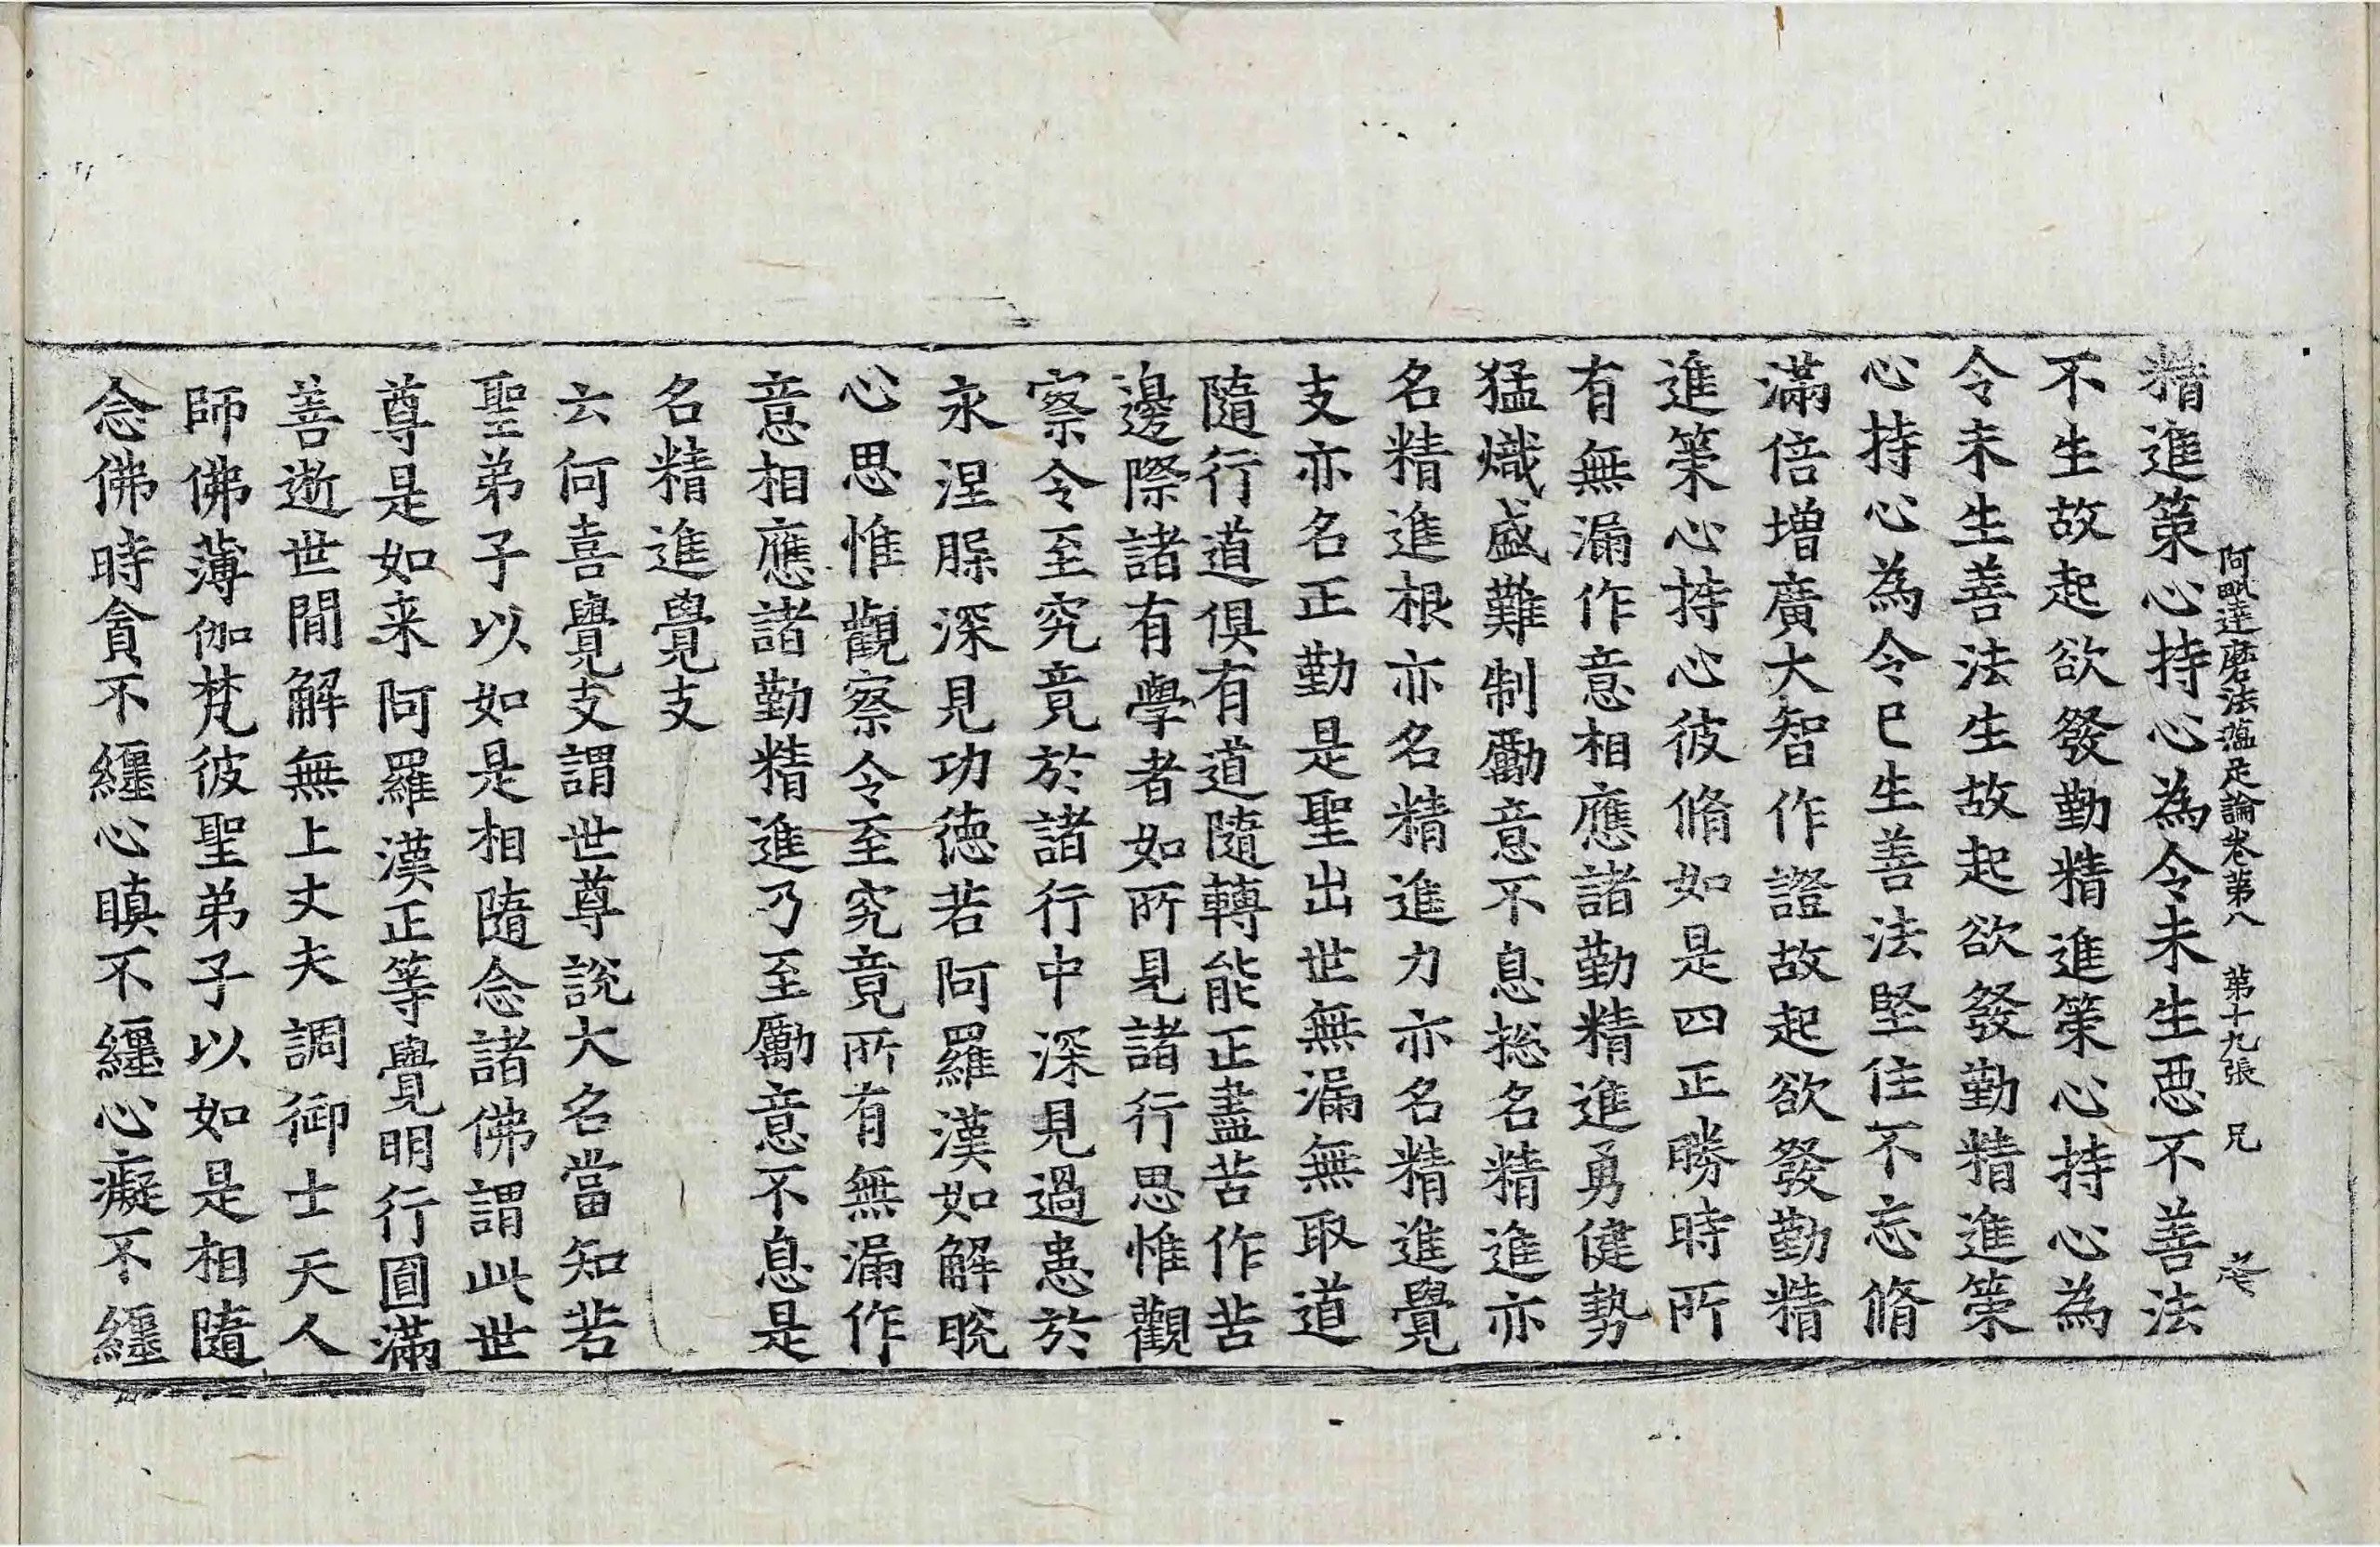 阿毗達磨法蘊足論卷第八 第十九張 兄
精進策心持心為令未生惡不善法
不生故起欲發勤精進策心持心為
令未生善法生故起欲發勤精進策
心持心為令已生善法堅住不忘脩
滿倍增廣大智作證故起欲發勤精
進策心持心彼脩如是四正勝時所
有無漏作意相應諸勤精進勇健勢
猛熾盛難制勵意不息摠名精進亦
名精進根亦名精進力亦名精進覺
支亦名正勤是聖出世無漏無取道
隨行道俱有道隨轉能正盡苦作苦
邊際諸有學者如所見諸行思惟觀
察令至究竟於諸行中深見過患於
永涅槃深見功德若阿羅漢如解脫
心思惟觀察令至究竟所有無漏作
意相應諸勤精進乃至勵意不息是
名精進覺支
云何喜覺支謂世尊說大名當知若
聖弟子以如是相隨念諸佛謂此世
尊是如来阿羅漢正等覺明行圓滿
善逝世間解無上丈夫調御士天人
師佛薄伽梵彼聖弟子以如是相隨
念佛時貪不纏心瞋不纏心癡不纏